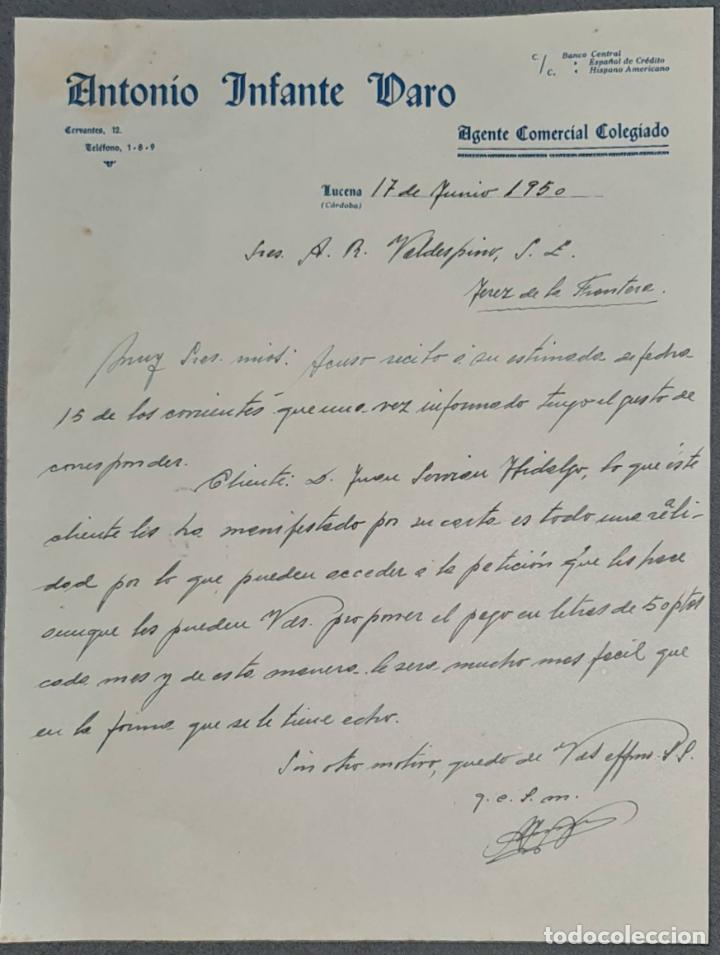 C/C. Banco Central
" Español de Crédito
" Hispano Americano
Antonio Infante Varo
Cervantes, 12.
Teléfono, 1-8-9
Agente Comercial Colegiado
Lucena 17 de Junio 1950
(Córdoba)
Sres. A. R. Valdespino, S. L.
Jerez de la Frontera.
Muy Sres. mios: Acuso recibo á su estimada de fecha
15 de los corrientes que una vez informado tengo el gusto de
corresponder.
Cliente: D. Juan Servian Hidalgo, lo que éste
cliente les ha manifestado por su carta es todo una reali-
dad por lo que pueden acceder á la petición que les hace
aunque les pueden Vds. proponer el pago en letras de 50 ptas
cada mes y de esta manera le sera mucho mas facil que
en la forma que se le tiene echo.
Sin otro motivo, quedo de Vds affmo. S.S.
q. e. s. m.
todocoleccion.net